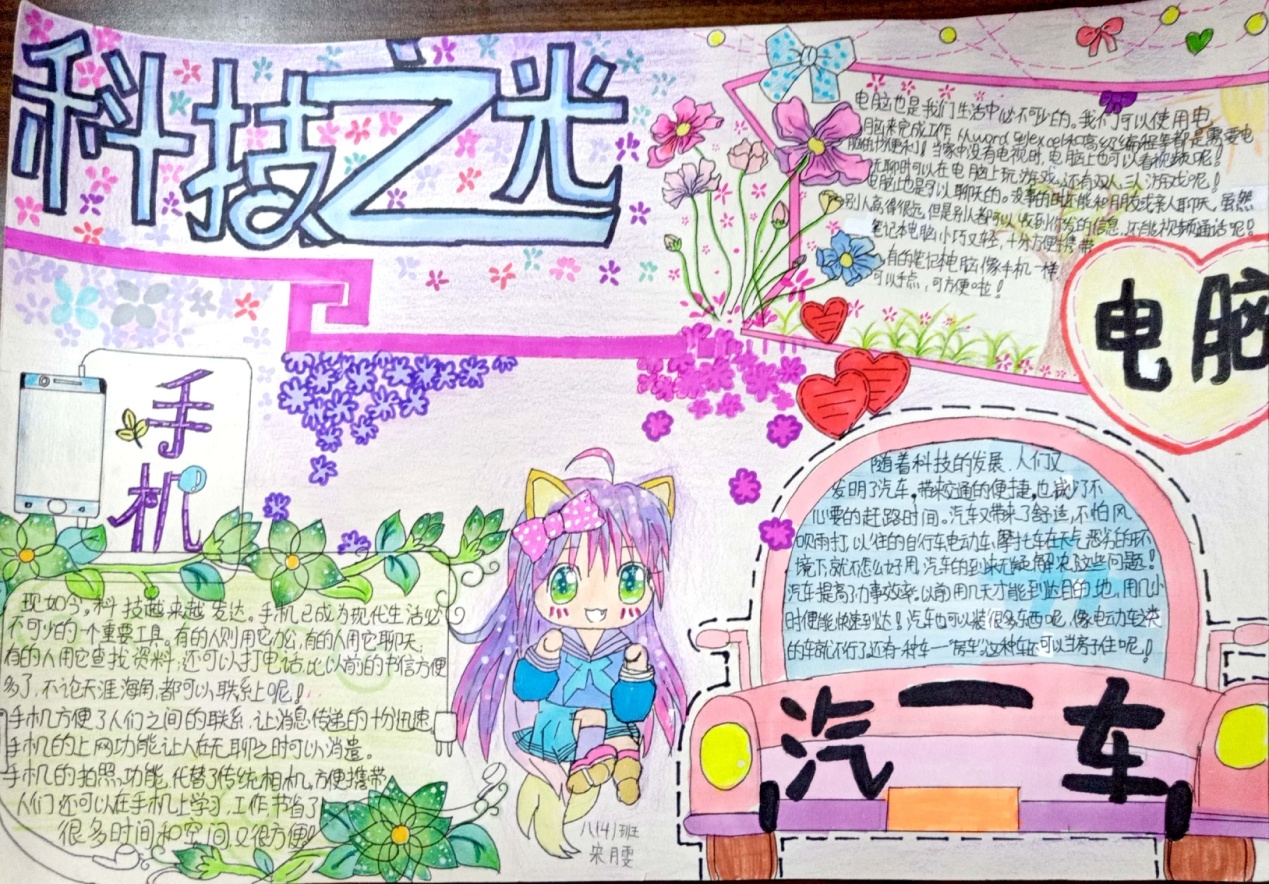 科技之光
电脑也是我们生活中必不可少的。我们可以使用电
脑来完成工作。从word到excel和高级编程等都是需要电
脑的,可便利了!当家中没有电视时,电脑上也可以看视频呢!
无聊时可以在电脑上玩游戏,还有双人、三人游戏呢!
电脑上也是可以聊天的。没事的时还能和朋友或亲人聊天,虽然
别人离得很远,但是别人都可以收到你发的信息,还能视频通话呢!
笔记本电脑小巧又轻,十分方便携带
有的笔记本电脑像手机一样
可以手点,可方便啦!
电脑
手机
现如今,科技越来越发达。手机已成为现代生活必
不可少的一个重要工具。有的人则用它办公,有的人用它聊天,
有的人用它查找资料;还可以打电话,比以前的书信方便
多了,不论天涯海角,都可以联系上呢!
手机方便了人们之间的联系,让消息传递的十分迅速
手机的上网功能让人在无聊之时可以消遣。
手机的拍照功能,代替了传统相机,方便携带
人们还可以在手机上学习,工作节省了
很多时间和空间,又很方便!
随着科技的发展,人们又
发明了汽车。带来交通的便捷,也减少了不
必要的赶路时间。汽车又带来了舒适,不怕风
吹雨打,以往的自行车、电动车、摩托车在天气恶劣的环
境下,就不怎么好用,汽车的到来无能解决这些问题!
汽车提高了办事效率。以前用几天才能到达目的地,用几小
时便能快速到达!汽车也可以装很多东西呢,像电动车之类
的车就不行了还有一种车一"房车"这种车还可以当房子住呢!
汽一车
八(4)班
宋月雯